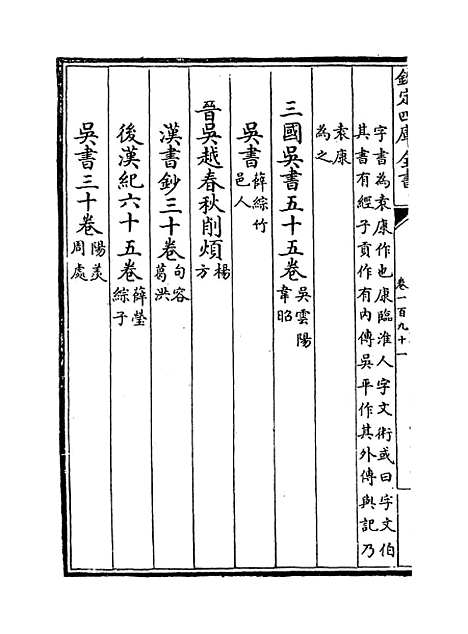 欽定四庫全書
卷一百九十一
字書為袁康作也康臨淮人字文術或曰字文伯
其書有經子貢作有內傳吳平作其外傳與記乃
袁康
為之
三國吳書五十五卷 吳雲陽
韋昭
吳書 薛綜竹
邑人
晉吳越春秋削煩 楊
方
漢書鈔三十卷 句容
葛洪
後漢紀六十五卷 薛瑩
綜子
吳書三十卷 陽羨
周處